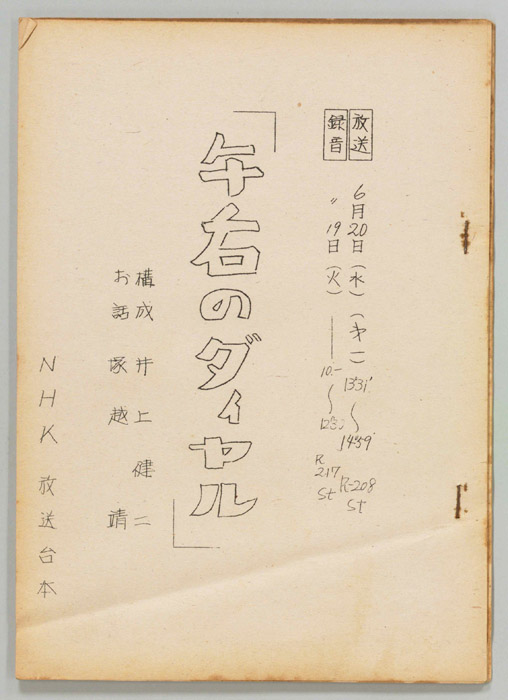 放送 6月20日(水)(才一) 13:31~14:59 R-208 St
録音 〃19日(火)―― 10.-~ R217 St
「午右のダイヤル」
構成 井上健二
お話 塚越 靖
NHK放送台本